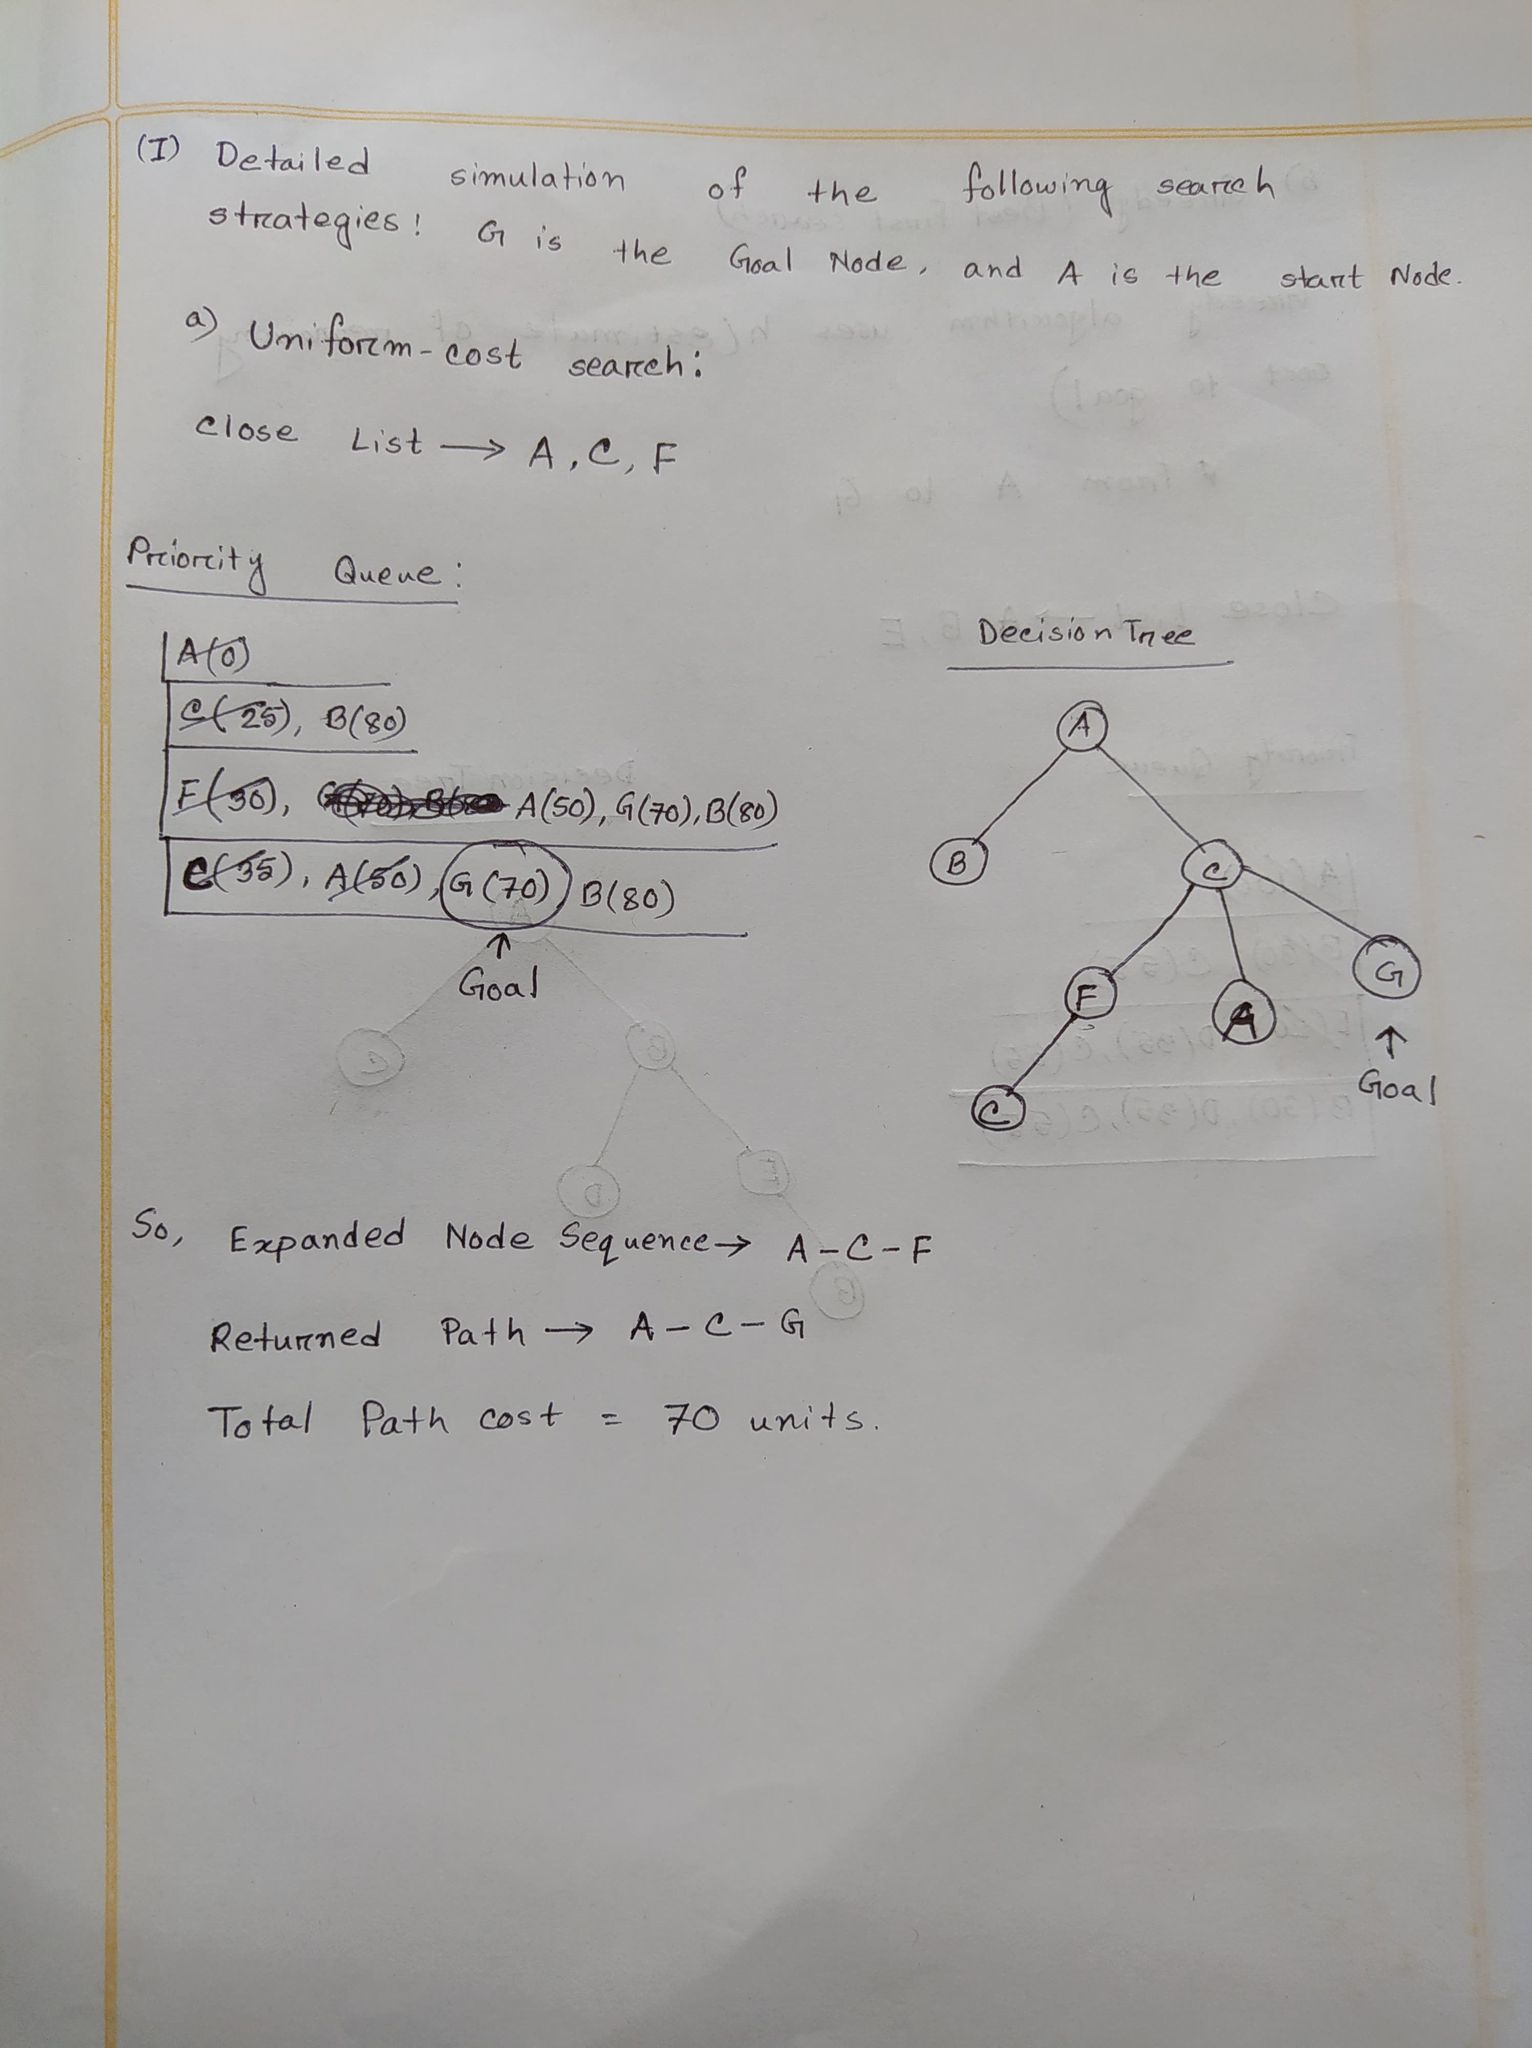 (I) Detailed simulation of the following search
strategies! G is the Goal Node, and A is the start Node.
a) Uniform-cost search:
Close List → A, C, F
Priority Queue:
A(0)
C(25), B(80)
F(30), A(50), G(70), B(80)
C(35), A(50), G(70) B(80)
↑
Goal
Decision Tree
A
B C
F A G
↑
Goal
C
So, Expanded Node Sequence → A-C-F
Returned Path → A-C-G
Total Path cost = 70 units.